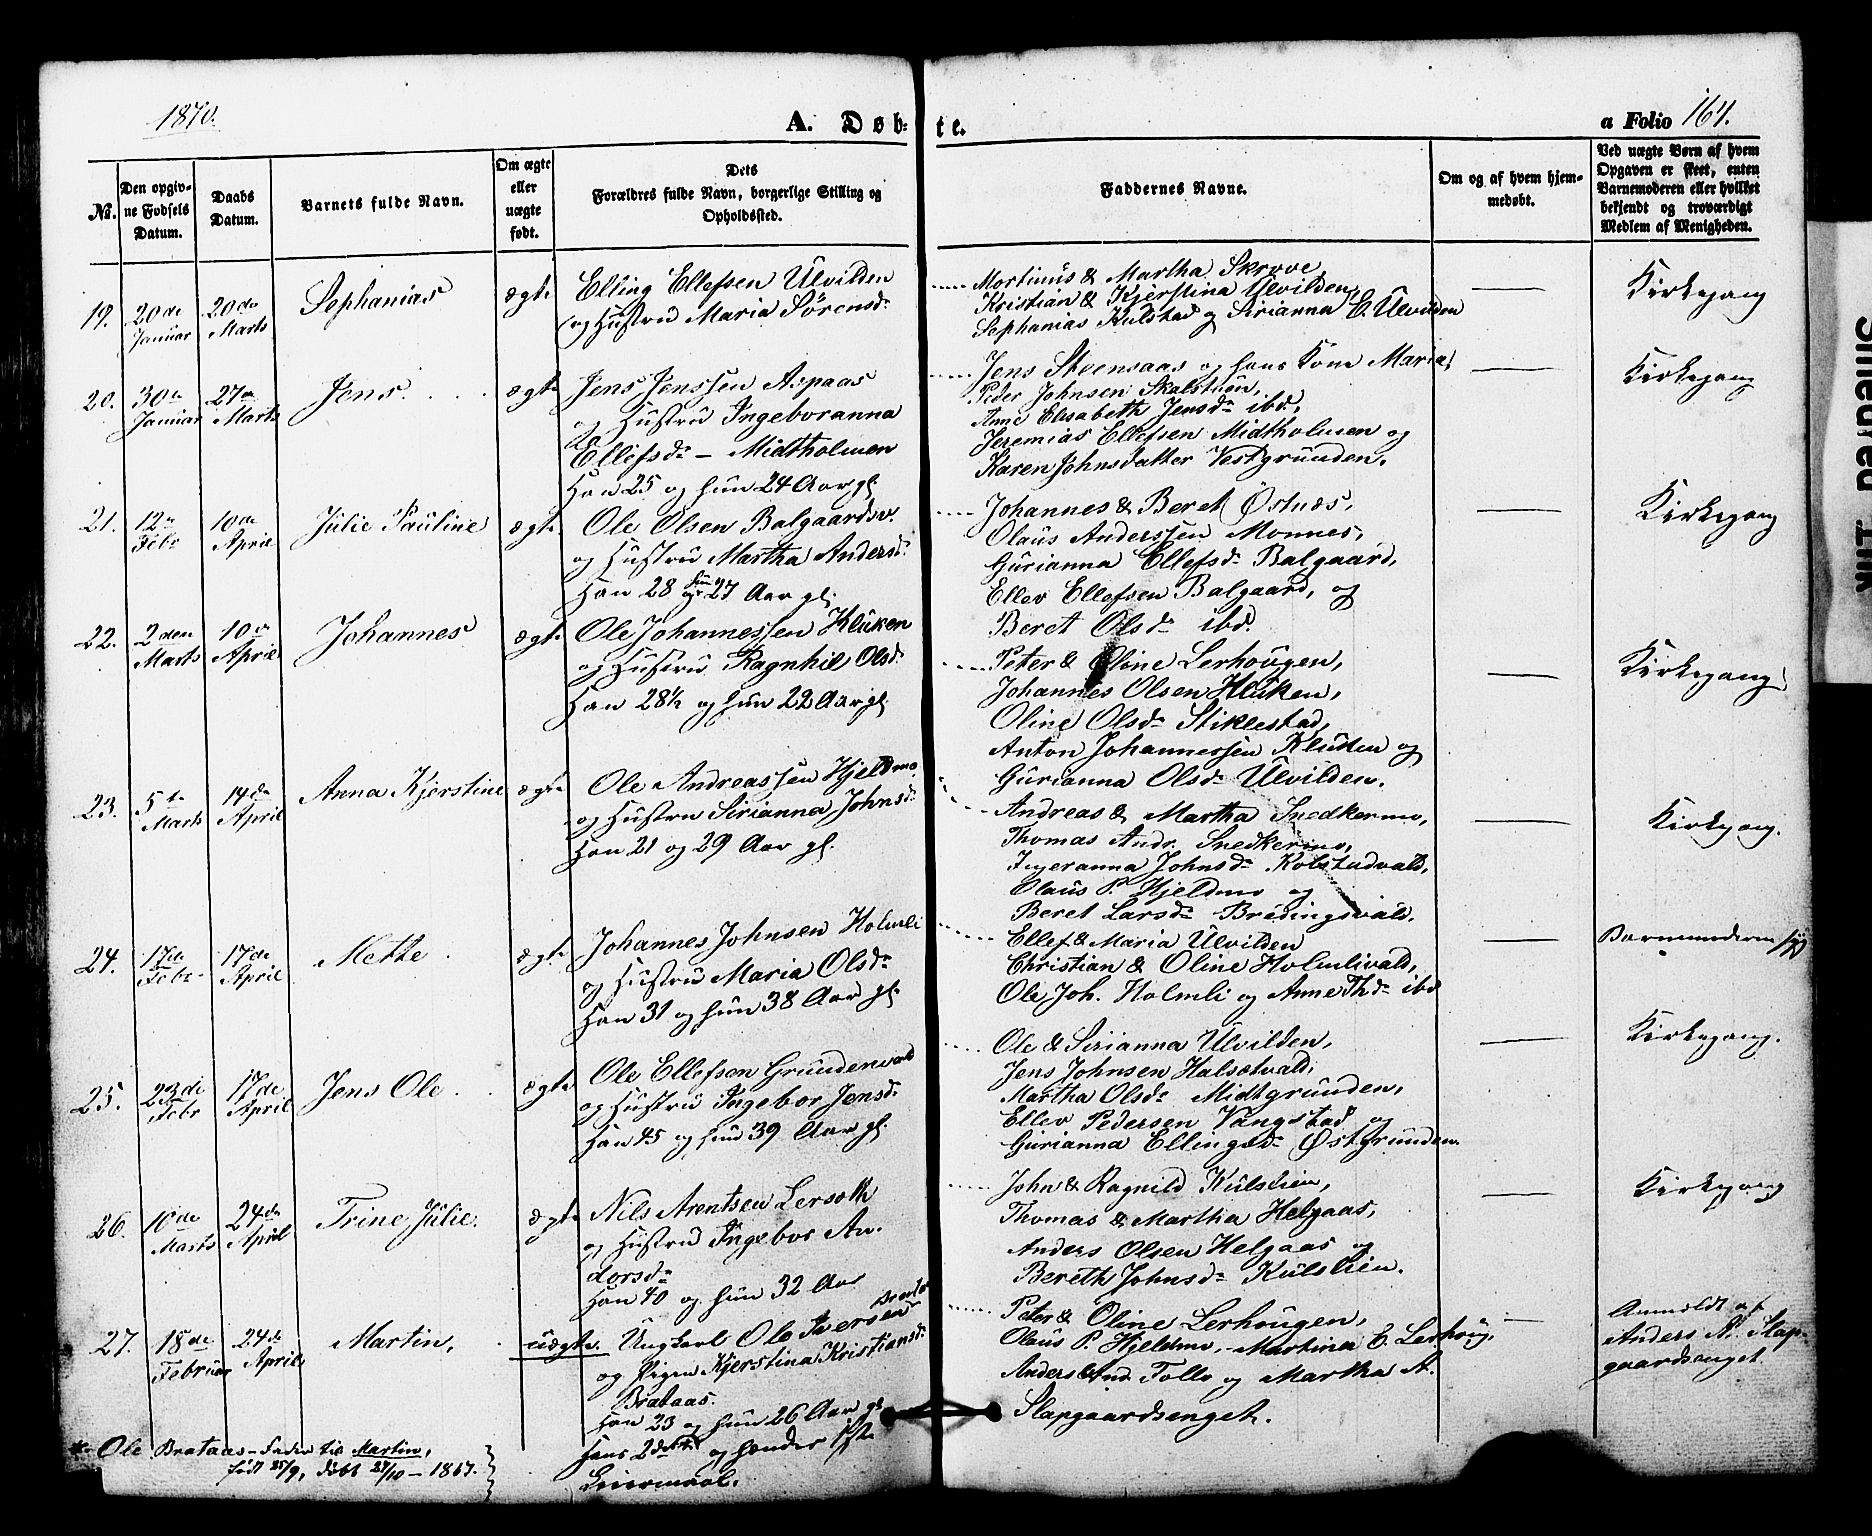 1870.
A. Døb=
te.
a Folio 164.
No.
Den opgiv-
ne Fødsels
Datum.
Daabs
Datum.
Barnets fulde Navn.
Om ægte
eller
uægte
født.
Dets
Forældres fulde Navn, borgerlige Stilling og
Opholdssted.
Faddernes Navne.
Om og af hvem hjem-
medøbt.
Ved uægte Børn af hvem
Opgaven er skeet, enten
Barnemoderen eller hvilket
bekjendt og troværdigt
Medlem af Menigheden.
19.
20de
Januar
20de
Marts
Sephanias
ægte
Elling Ellefsen Ulvilden
og Hustru Maria Sørensd.
Mortinus & Martha Skrove
Kristian & Kjerstina Ulvilden,
Sephanias Kulstad og Sirianna E. Ulvilden
Kirkegang
20.
30te
Januar
27de
Marts
Jens.
ægte
Jens Jenssen Aspaas
og Hustru Ingeboranna
Ellefsdr – Midtholmen
Han 25 og hun 24 Aar gl.
Jens Steensaas og hans Kone Maria,
Peder Johnsen Skalstuen,
Anne Elisabeth Jensdr ibd.,
Jeremias Ellefsen Midtholmen og
Karen Johnsdatter Vestgrunden.
Kirkegang
21.
12te
Febr
10de
April
Julie Pauline
ægte
Ole Olsen Balgaardsv.
og Hustru Martha Andersd.
Han 28 og hun 27 Aar gl.
Johannes & Beret Østnæs,
Olaus Anderssen Monnes,
Gurianna Ellefsdr Balgaard,
Ellev Ellefsen Balgaard, og
Beret Olsdr ibd.
Kirkegang
22.
2den
Marts
10de
April
Johannes
ægte
Ole Johannessen Kluken
og Hustru Ragnhil Olsd.
Han 28½ og hun 22 Aar gl.
Peter & Oline Lerhougen,
Johannes Olsen Kluken,
Oline Olsdr Stiklestad,
Anton Johannessen Kluken og
Gurianna Olsdr Ulvilden.
Kirkegang
23.
5te
Marts
14de
April
Anna Kjerstine
ægte
Ole Andreassen Hjeldmo
og Hustru Sirianna Johnsd.
Han 21 og 29 Aar gl.
Andreas & Martha Snedkermo,
Thomas Andr. Snedkermo,
Ingeranna Johnsdr Kolstadvald,
Olaus P. Hjeldmo og
Beret Larsdr Bredingsvald.
Kirkegang.
24.
17de
Febr
17de
April
Mette
ægte
Johannes Johnsen Holmli
og Hustru Maria Olsdr
Han 31 og hun 38 Aar gl.
Ellef & Maria Ulvilden
Christian & Oline Holmlivald,
Ole Joh. Holmli og Anne Thdr ibd
Barnemoderen syg
25.
23de
Febr
17de
April
Jens Ole
ægte
Ole Ellefsen Grundenvald
og Hustru Ingebor Jensd.
Han 45 og hun 39 Aar gl.
Ole & Sirianna Ulvilden,
Jens Johnsen Halsetvald,
Martha Olsdr Midtgrunden,
Ellev Pedersen Vangstad og
Gurianna Ellingsdr Østgrunden.
Kirkegang.
26.
10de
Marts
24de
April
Trine Julie.
ægte
Nils Arentsen Lersoth
og Hustru Ingebor An-
dorsdr
Han 40 og hun 32 Aar
John & Ragnild Kulslien,
Thomas & Martha Helgaas,
Anders Olsen Helgaas og
Bereth Johnsdr Kulslien.
Kirkegang
27.
18de
Februar
24de
April
Martin,
uægte.
Ungkarl Ole Iversen Brataas
og Pigen Kjerstina Kristiansd.
Brataas.
Han 23 og hun 26 Aar gl.
Hans 2det og hendes 1ste
Leiermaal.
Peter & Oline Lerhougen,
Olaus P. Hjeldmo, Martina E. Lerhoug,
Anders And. Tollo og Martha A.
Slapgaardsenget.
Anmeldt af
Anders A. Slap-
gaardsenget
* Ole Brataas – Fader til Martin,
født 25/9, døbt 27/10 – 1867.